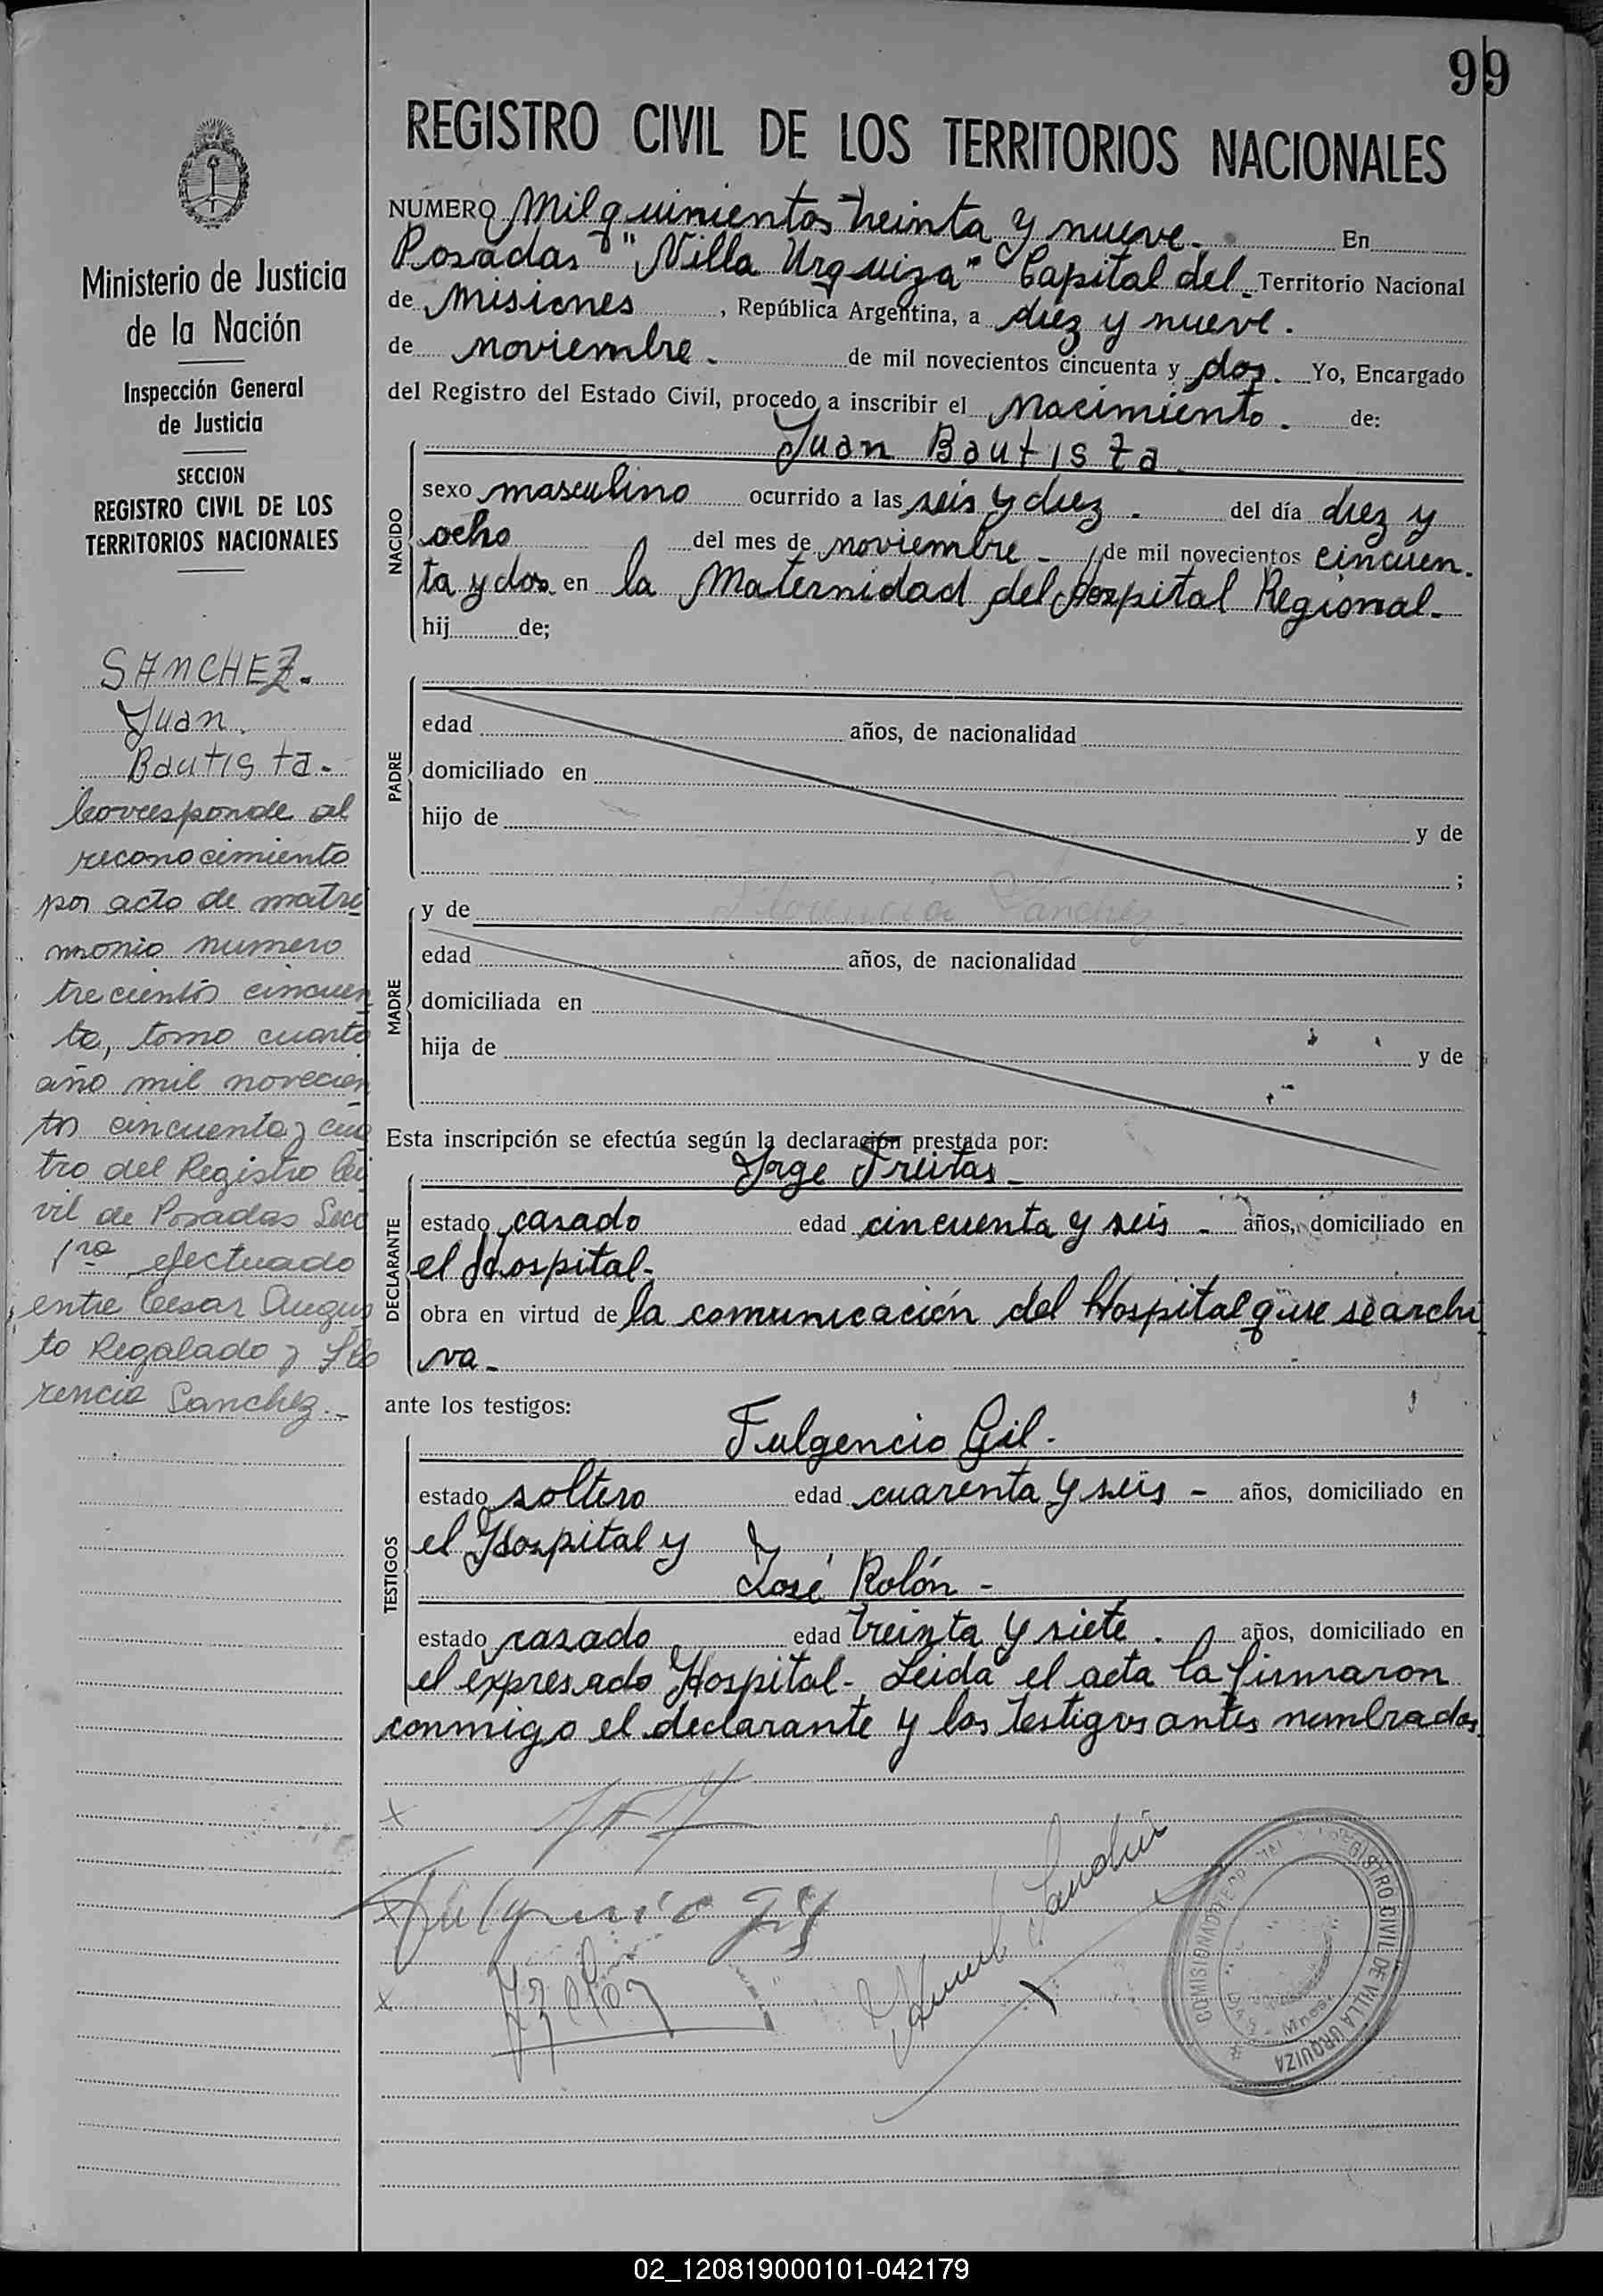 99
REGISTRO CIVIL DE LOS TERRITORIOS NACIONALES
Ministerio de Justicia
de la Nación
Inspección General
de Justicia
SECCION
REGISTRO CIVIL DE LOS
TERRITORIOS NACIONALES
SANCHEZ.
Juan
Bautista.
Corresponde al
reconocimiento
por acto de matri
monio numero
trecientos cincuen
ta, tomo cuarto
año mil novecien
tos cincuenta y cua
tro del Registro Ci
vil de Posadas Secc
1ra efectuado
entre Cesar Augus
to Regalado y Flo
rencia Sanchez.-
NUMERO Mil quinientos treinta y nueve.- En
Posadas "Villa Urquiza" Capital del Territorio Nacional
de Misiones , República Argentina, a diez y nueve.
de noviembre. de mil novecientos cincuenta y dos. Yo, Encargado
del Registro del Estado Civil, procedo a inscribir el Nacimiento. de:
Juan Bautista
NACIDO
sexo masculino ocurrido a las seis y diez. del día diez y
ocho del mes de noviembre - de mil novecientos cincuen.
ta y dos en la Maternidad del Hospital Regional.
hij de;
PADRE
edad años, de nacionalidad
domiciliado en
hijo de y de
;
MADRE
y de Florencia Sanchez
edad años, de nacionalidad
domiciliada en
hija de y de
Esta inscripción se efectúa según la declaración prestada por:
Jorge Freitas-
DECLARANTE
estado casado edad cincuenta y seis - años, domiciliado en
el Hospital-
obra en virtud de la comunicación del Hospital que se archi
va-
ante los testigos:
Fulgencio Gil.
TESTIGOS
estado soltero edad cuarenta y seis - años, domiciliado en
el Hospital y
José Rolón -
estado casado edad treinta y siete. años, domiciliado en
el expresado Hospital- Leida el acta la firmaron
conmigo el declarante y los testigos antes nombrados
Fulgencio Gil
REGISTRO CIVIL DE VILLA URQUIZA
02_120819000101-042179